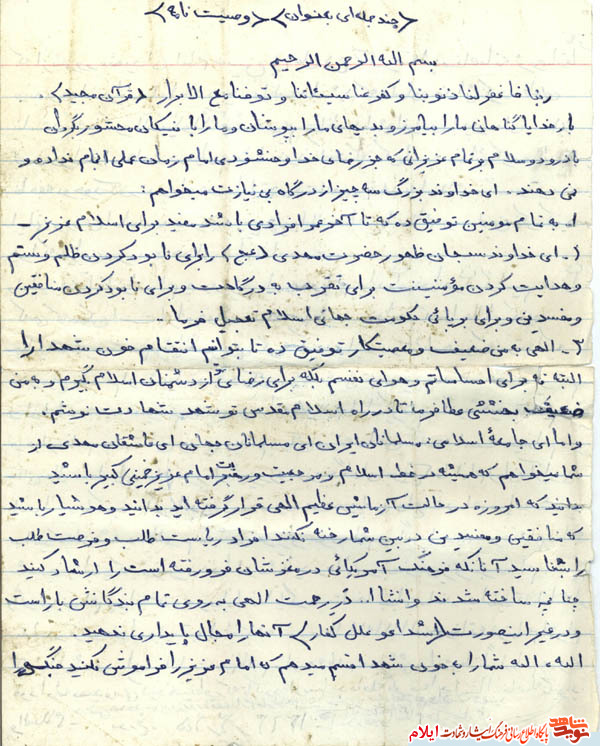 (چند جمله‌ای بعنوان) (وصیت نامه)
بسم الله الرحمن الرحیم
ربنا فاغفرلنا ذنوبنا و کفر عنا سیئاتنا و توفنا مع الابرار (قرآن مجید)
بار خدایا گناهان ما را بیامرز و بدیهای ما را بپوشان و ما را با نیکان محشور بگردان
با درود و سلام بر تمام عزیزانی که جز رضای خدا و خشنودی امام زمان عملی انجام نداده و
نمی دهند. ای خداوند بزرگ سه چیز از درگاه بی نیازت میخواهم:
۱- به تمام مومنین توفیق ده که تا آخر عمر افرادی باشند مفید برای اسلام عزیز -
۲- ای خداوند سبحان ظهور حضرت مهدی (عج) را برای نابود کردن ظلم و ستم
و هدایت کردن مؤمنینت برای تقرب به درگاهت و برای نابود کردن منافقین
و مفسدین و برای برپائی حکومت جهانی اسلام تعجیل فرما.
۳- الهی به من ضعیف و معصیتکار توفیق ده تا بتوانم انتقام خون شهدا را
البته نه برای احساساتم و هوای نفسم بلکه برای رضای تو از دشمنان اسلام بگیرم و به من
ضعیف بخششی عطا فرما تا در راه اسلام مقدس تو شهد شهادت نوشم.
و اما ای جامعهٔ اسلامی: مسلمانان ایران ای مسلمانان جهان ای عاشقان مهدی از
شما میخواهم که همیشه در خط اسلام و مرجعیت و رهبریت امام عزیز خمینی کبیر باشید
بدانید که امروزه در حالت آزمایش عظیم الهی قرار گرفته اید بدانید و هوشیار باشید
که منافقین و مفسدین در بین شما رخنه نکنند افراد ریاست طلب و فرصت طلب
را بشناسید آنانکه فرهنگ آمریکائی در مغزشان فرو رفته است را ارشاد کنید
چنانچه ساخته شدند و انشاا.. در رحمت الهی به روی تمام بندگانش باز است
و در غیر اینصورت (اشداء علی الکفار) آنها را مجال پایداری ندهید.
الله، الله شما را به خون شهدا قسم میدهم که امام عزیز را فراموش نکنید جنگ را
نوید شاهد
پایگاه اطلاع رسانی فرهنگ ایثار و شهادت ایلام